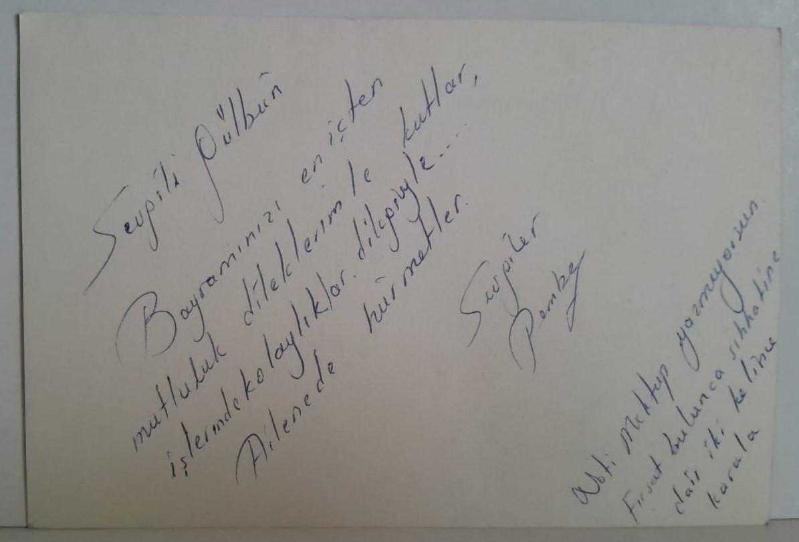 Sevgili Gülbün
Bayramınızı en içten
mutluluk dileklerimle kutlar,
işlerinde kolaylıklar dileğiyle....
Ailenede hürmetler.
Sevgiler
Pembe
Not: Mektup yazmıyorsun.
Fırsat bulunca sıhhatine
dair iki kelime
karala